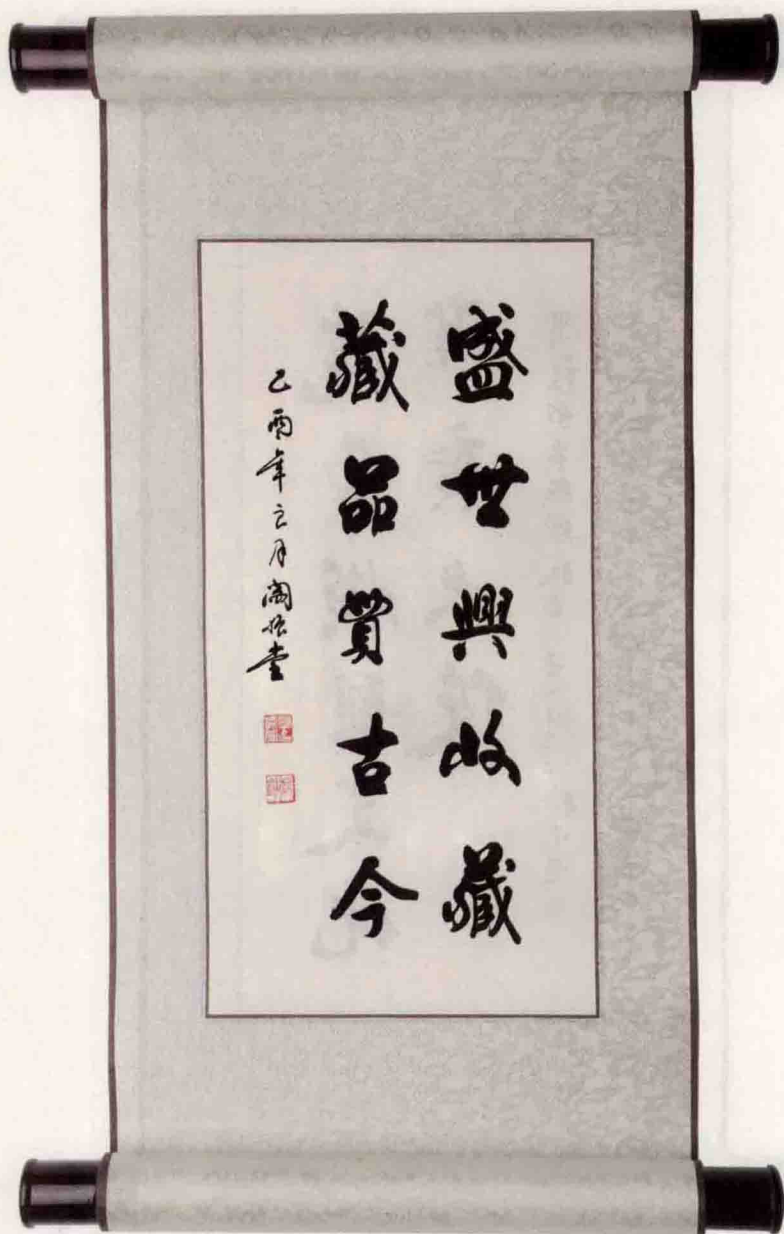 盛世興收藏
藏品貫古今
乙酉年六月闞振堂